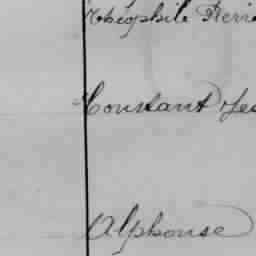 Théophile Pierre
Constant Jea
Alphonse